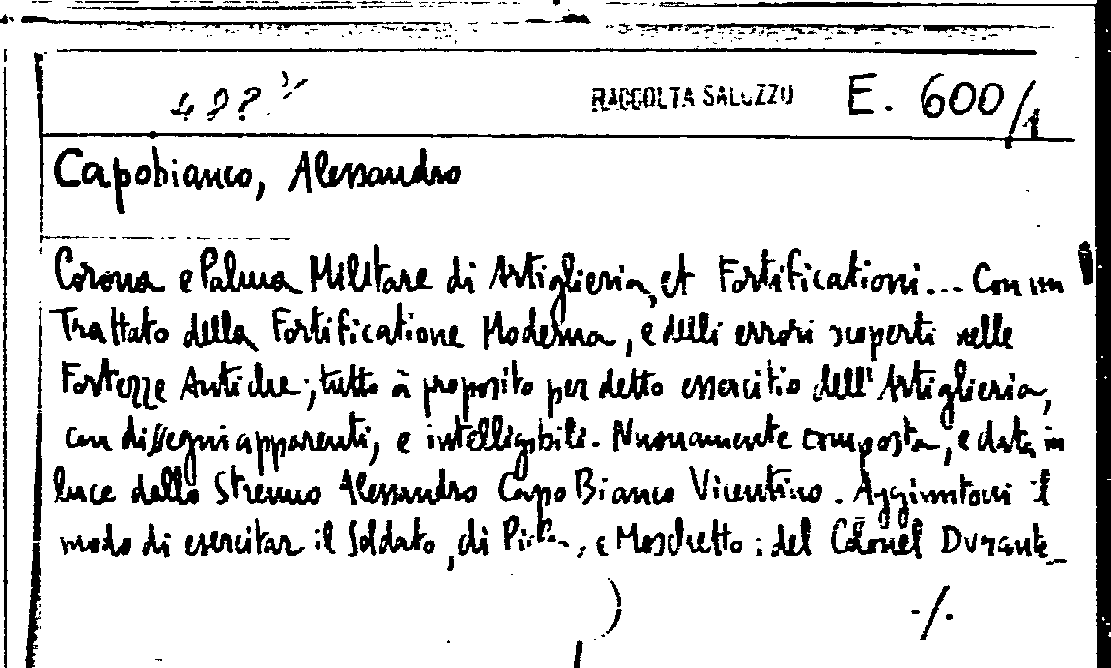 RACCOLTA SALUZZO E. 600/1
Capobianco, Alessandro
Corona e Palma Militare di Artiglieria, et Fortificationi... Con un
Trattato della Fortificatione Moderna, e delli errori scoperti nelle
Fortezze Antiche; tutto à proposito per detto essercitio dell'Artiglieria,
con dissegni apparenti, e intelligibili. Nuouamente composta, e data in
luce dallo Strenuo Alessandro Capo Bianco Vicentino. Aggiuntoui il
modo di esercitar il Soldato, di Picha, e Moschetto: del Colonel Durante
./.